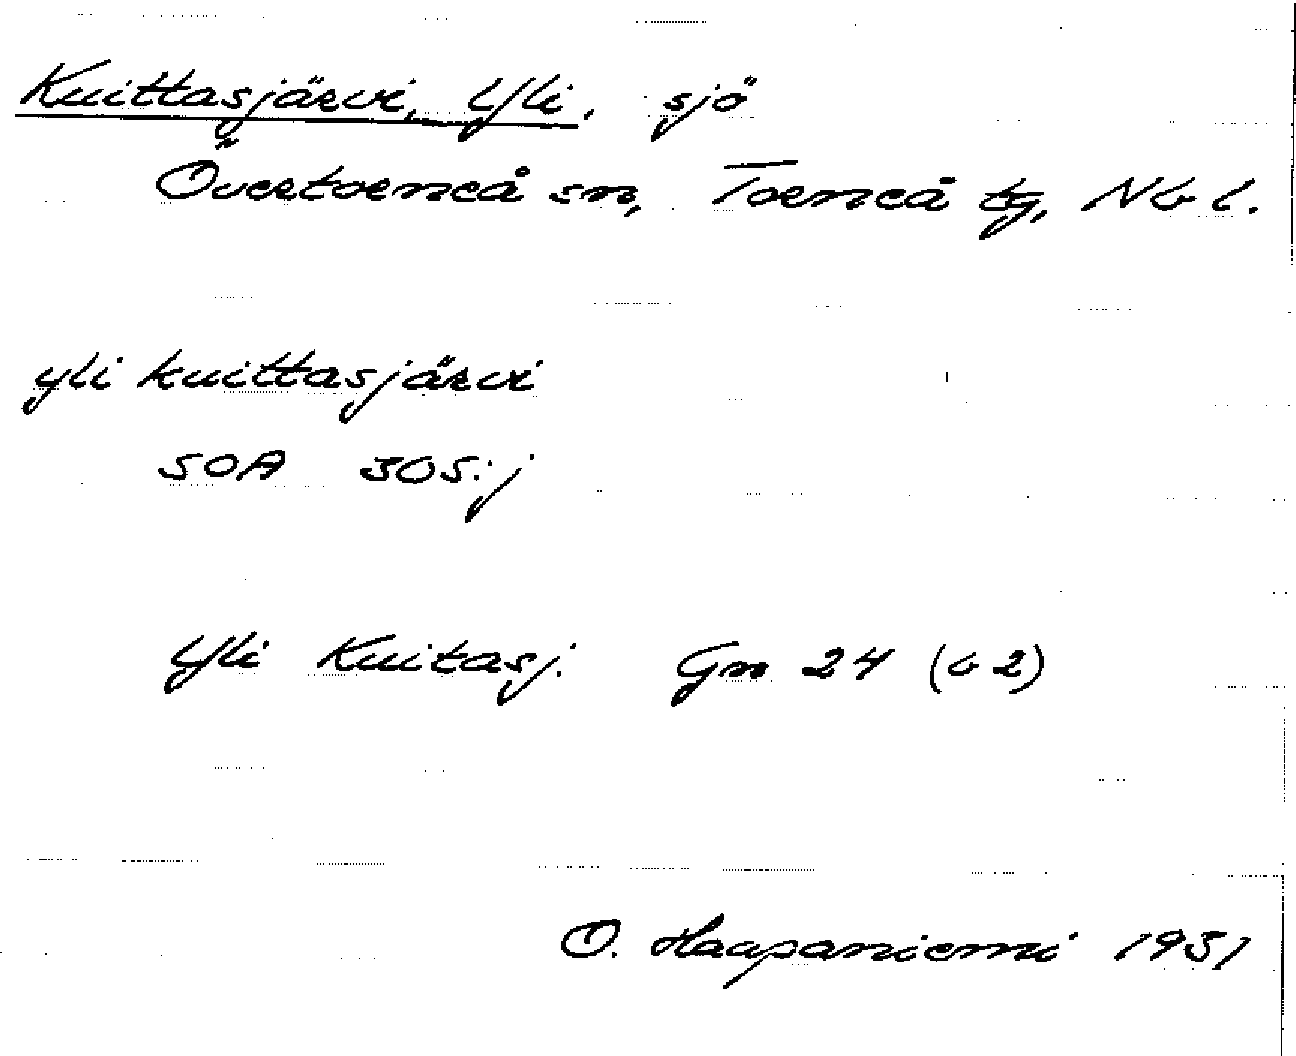 Kuittasjärvi, Yli, sjö
Övertorneå sn, Torneå tg, Nb l.
yli kuittasjärvi
SOA 305:j
Yli Kuitasj. Gn 24 (b2)
O. Haapaniemi 1951